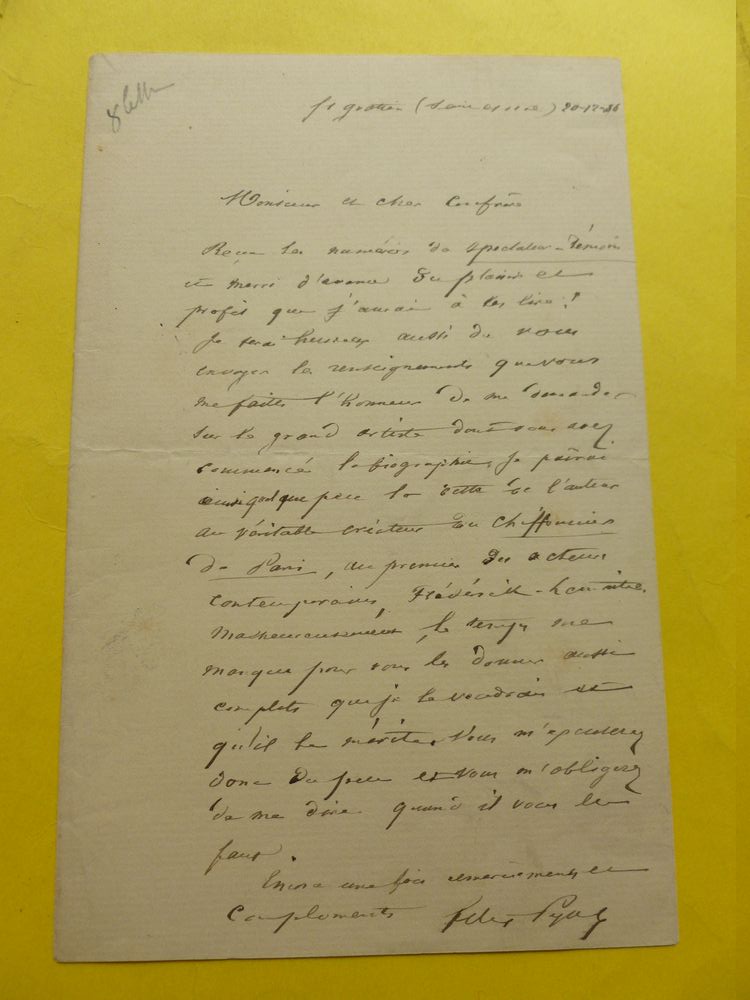 St gratien (Seine et Oise) 20-12-86
Monsieur et cher Confrère
Reçu les numéros du Spectateur-Témoin
et merci d'avance du plaisir et
profit que j'aurai à les lire!
Je serai heureux aussi de vous
envoyer les renseignements que vous
me faites l'honneur de me demander
sur le grand artiste dont vous avez
commencé la biographie. Je paierai
ainsi quelque peu la dette de l'auteur
au véritable créateur du Chiffonnier
de Paris, au premier des acteurs
contemporains, Frédérick-Lemaître.
Malheureusement, le temps me
manque pour vous les donner aussi
complets que je le voudrais et
qu'il le mérite. Vous m'excuserez
donc du peu et vous m'obligerez
de me dire quand il vous les
faut
Encore une fois remerciements et
Compliments Felix Pyat